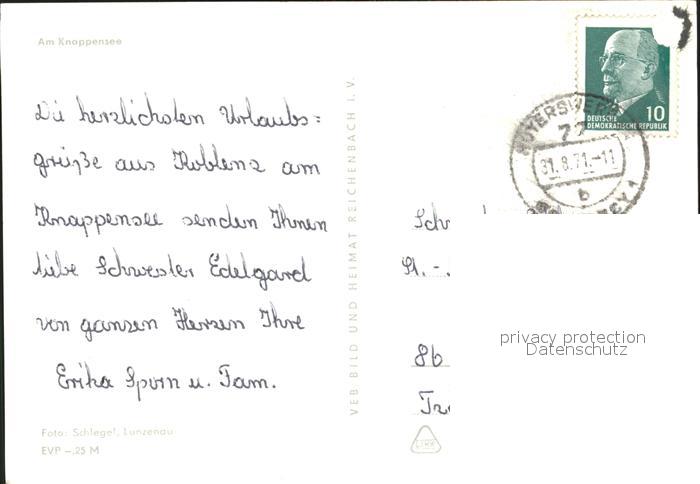 Am Knappensee
Die herzlichsten Urlaubs=
grüße aus Koblenz am
Knappensee senden Ihnen
liebe Schwester Edelgard
von ganzen Herzen Ihre
Erika Sporn u. Fam.
Foto: Schlegel, Lunzenau
EVP –,25 M
VEB BILD UND HEIMAT REICHENBACH I. V.
10
DEUTSCHE
DEMOKRATISCHE REPUBLIK
31.8.71.-11
b
St. -
86
privacy protection
Datenschutz